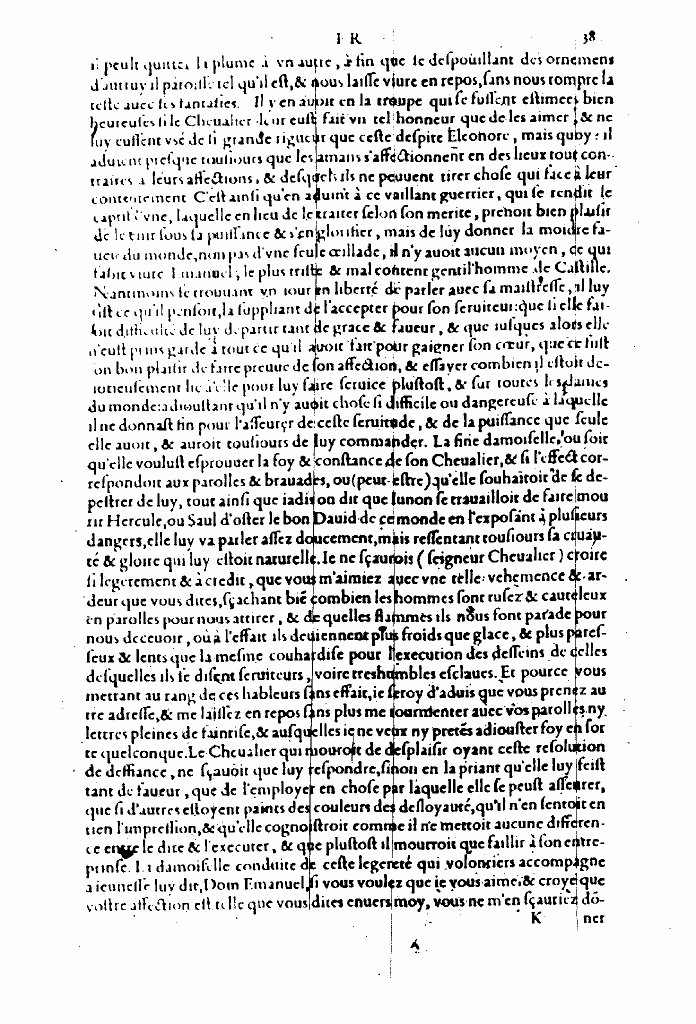 I R 38
il peult quitter la plume à vn autre, à fin que se despouillant des ornemens
d'autruy il paroisse tel qu'il est, & nous laisse viure en repos, sans nous rompre la
teste auec ses fantasies. Il y en auoit en la troupe qui se fussent estimees bien
heureuses si le Cheualier leur eust fait vn tel honneur que de les aimer, & ne
luy eussent vsé de si grande rigueur que ceste despite Eleonore, mais quoy: il
aduient presque tousiours que les amans s'affectionnent en des lieux tout con-
traires à leurs affections, & desquels ils ne peuuent tirer chose qui face à leur
contentement C'est ainsi qu'en aduint à ce vaillant guerrier, qui se rendit le
captif d'vne, laquelle en lieu de le traiter selon son merite, prenoit bien plaisir
de le tenir sous sa puissance & s'en glorifier, mais de luy donner la moidre fa-
ueur du monde, non pas d'vne seule œillade, il n'y auoit aucun moyen, ce qui
faisoit viure Emanuel, le plus triste & mal content gentil'homme de Castille.
Neantmoins se trouuant vn iour en liberté de parler auec sa maistresse, il luy
dist ce qu'il pensoit, la suppliant de l'accepter pour son seruiteur: que si elle fai-
soit difficulté de luy departir tant de grace & faueur, & que iusques alors elle
n'eust prins garde à tout ce qu'il auoit fait pour gaigner son cœur, que ce fust
son bon plaisir de faire preuue de son affection, & essayer combien il estoit de-
uotieusement lié à elle pour luy faire seruice plustost, & sur toutes les dames
du monde: adioustant qu'il n'y auoit chose si difficile ou dangereuse à laquelle
il ne donnast fin pour l'asseurer de ceste seruitude, & de la puissance que seule
elle auoit, & auroit tousiours de luy commander. La fine damoiselle, ou soit
qu'elle voulust esprouuer la foy & constance de son Cheualier, & si l'effect cor-
respondoit aux parolles & brauades, ou (peut-estre) qu'elle souhaitoit de se de-
pestrer de luy, tout ainsi que iadis on dit que Iunon se trauailloit de faire mou
rir Hercule, ou Saul d'oster le bon Dauid de ce monde en l'exposant à plusieurs
dangers, elle luy va parler assez doucement, mais ressentant tousiours sa cruau-
té & gloire qui luy estoit naturelle. Ie ne sçaurois (seigneur Cheualier) croire
si legerement & à credit, que vous m'aimiez auec vne telle vehemence & ar-
deur que vous dites, sçachant bié combien les hommes sont rusez & cauteleux
en parolles pour nous attirer, & de quelles flammes ils nous font parade pour
nous deceuoir, où à l'effait ils deuiennent plus froids que glace, & plus pares-
seux & lents que la mesme couhardise pour l'execution des desseins de celles
desquelles ils se disent seruiteurs, voire treshumbles esclaues. Et pource vous
mettant au rang de ces hableurs sans effait, ie seroy d'aduis que vous prenez au
tre adresse, & me laissez en repos sans plus me tourmenter auec vos parolles ny
lettres pleines de faintise, & ausquelles ie ne veux ny pretés adiouster foy en sor
te quelconque. Le Cheualier qui mouroit de desplaisir oyant ceste resolution
de deffiance, ne sçauoit que luy respondre, sinon en la priant qu'elle luy feist
tant de faueur, que de l'employer en chose par laquelle elle se peust asseurer,
que si d'autres estoyent paints des couleurs de desloyauté, qu'il n'en sentoit en
rien l'impression, & qu'elle cognoistroit comme il ne mettoit aucune differen-
ce entre le dire & l'executer, & que plustost il mourroit que faillir à son entre-
prinse. La damoiselle conduite de ceste legereté qui volontiers accompagne
la ieunesse luy dit, Dom Emanuel, si vous voulez que ie vous aime & croye que
vostre affection est telle que vous dites enuers moy, vous ne m'en sçauriez dó-
K ner